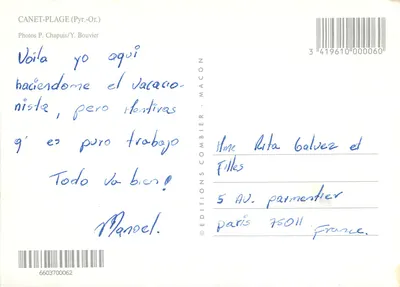 CANET-PLAGE (Pyr.-Or.)
Photos P. Chapuis/Y. Bouvier
Voila yo aquí
haciendome el vacacio-
nista, pero Mentiras
q' es puro trabajo
Todo va bien!
Manoel.
6603700062
© EDITIONS COMBIER - MACON
3 419610 000060
Mme Rita Galvez et
Filles
5 AV. parmentier
paris 75011
France.